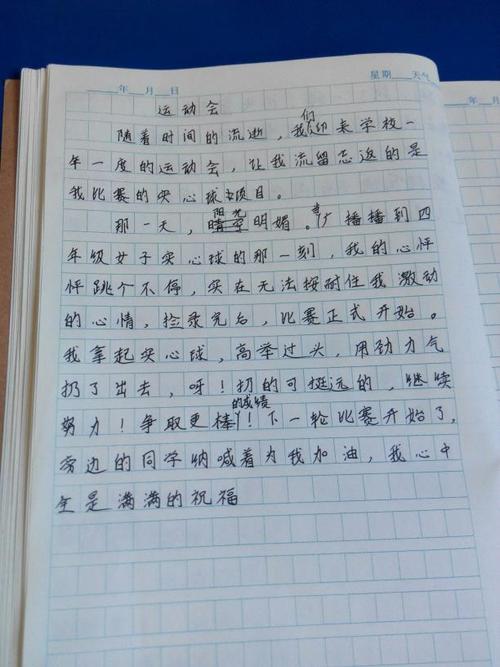 年 月 日
星期 天气
运动会
随着时间的流逝，我们迎来学校一
年一度的运动会，让我流留忘返的是
我比赛的实心球项目。
那一天，阳光明媚。当广播播到四
年级女子实心球的那一刻，我的心怦
怦跳个不停，实在无法按耐住我激动
的心情，检录完后，比赛正式开始。
我拿起实心球，高举过头，用劲力气
扔了出去，呀！扔的可挺远的，继续
努力！争取更棒的成绩！下一轮比赛开始了，
旁边的同学呐喊着为我加油，我心中
全是满满的祝福